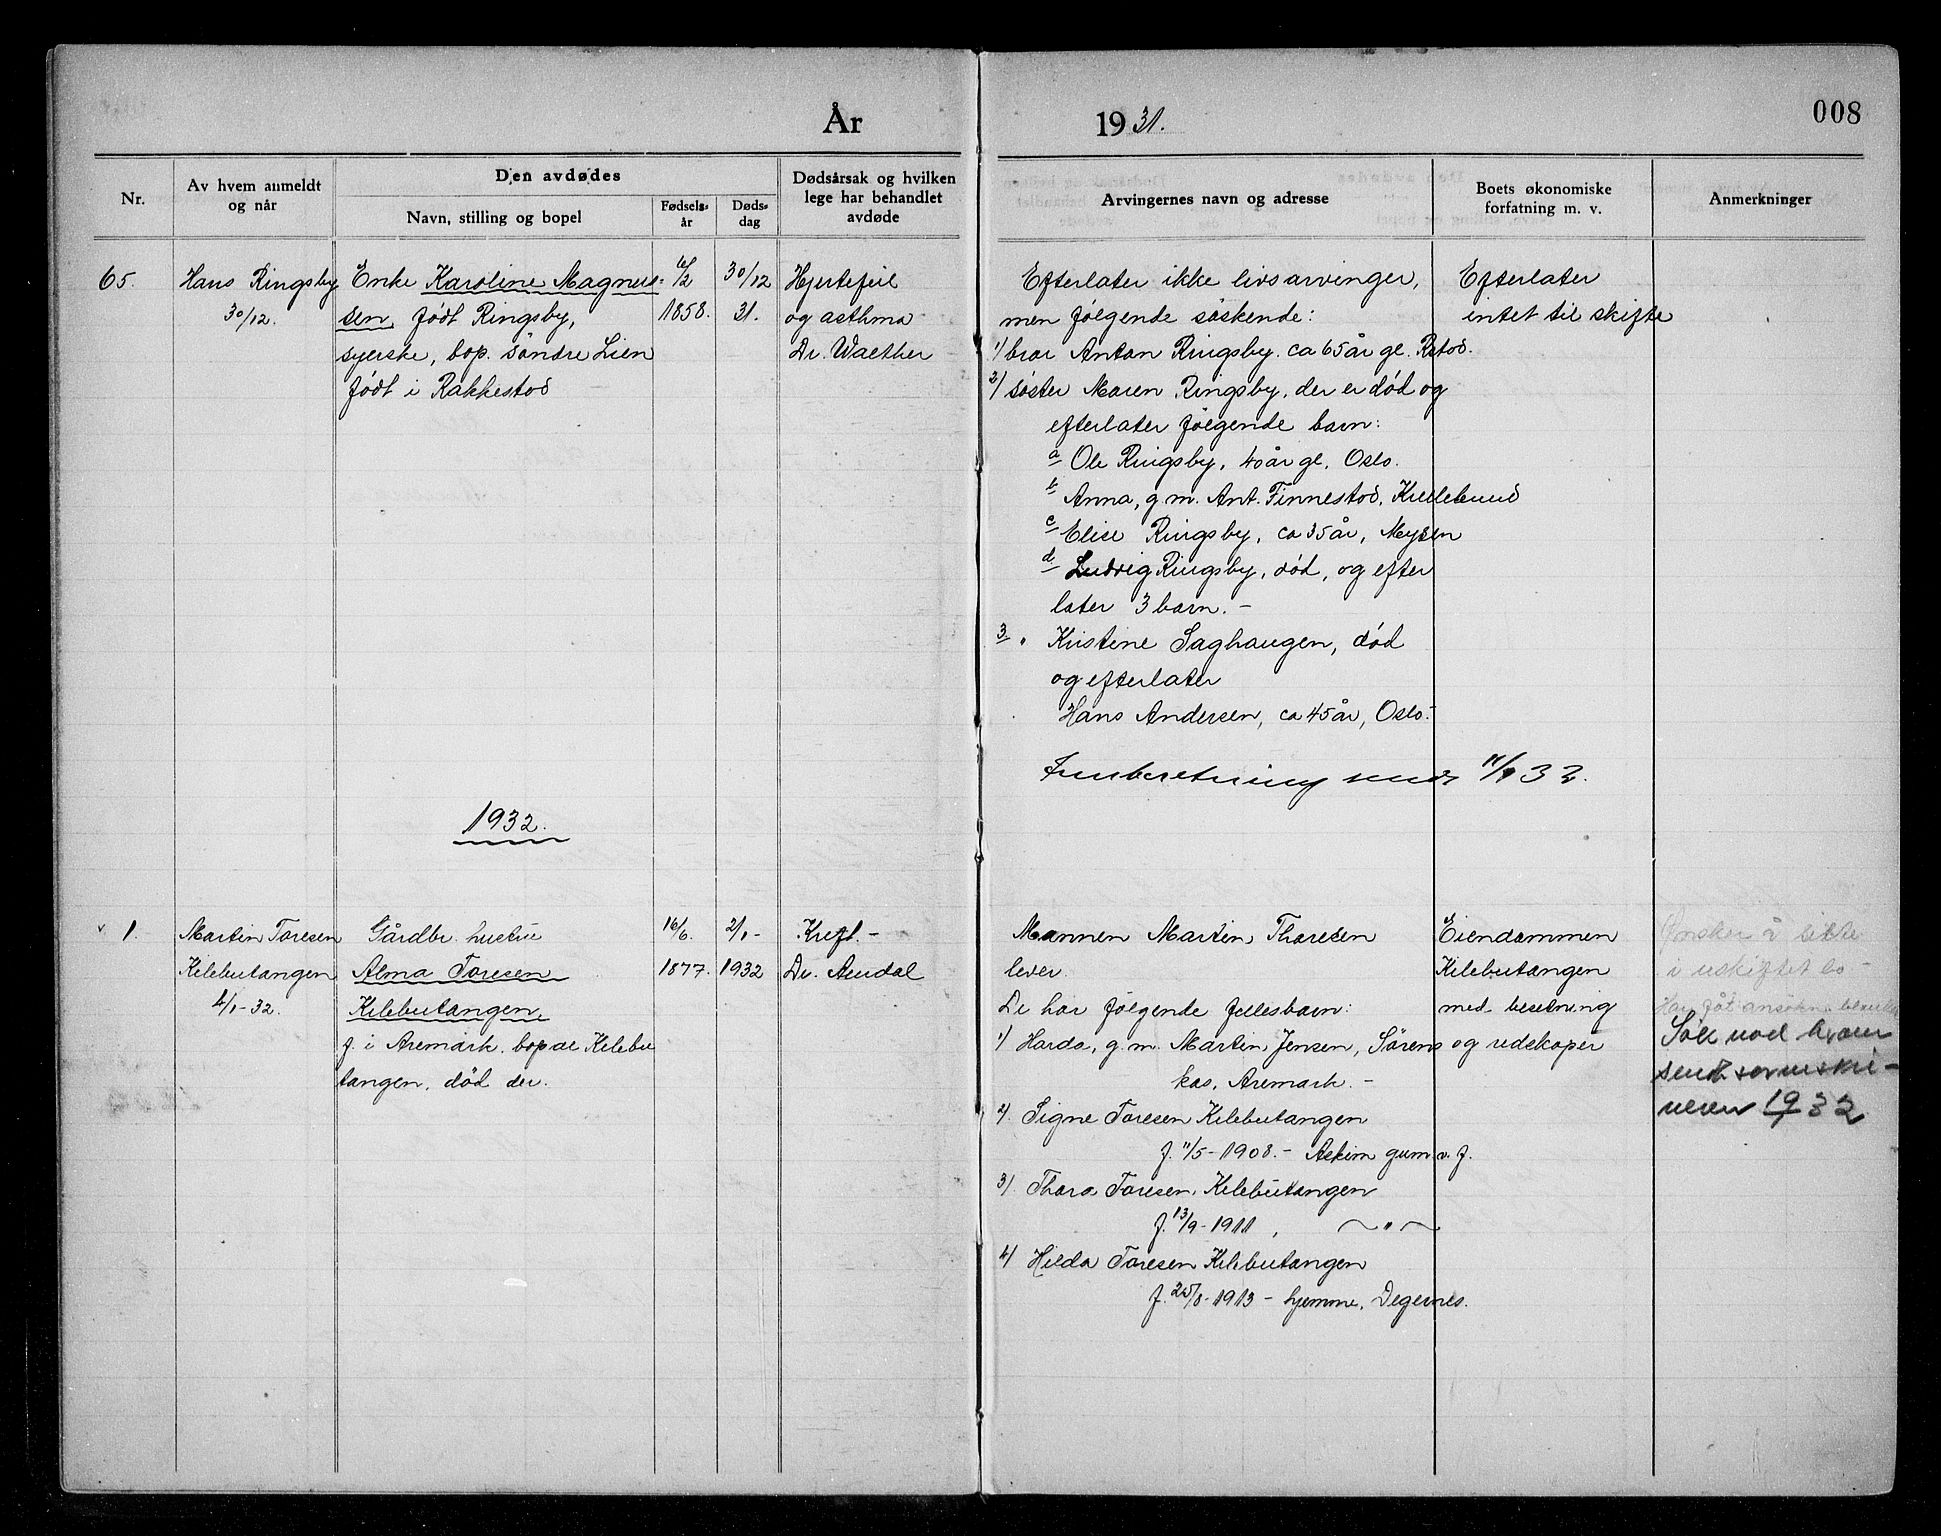 År 1931.
008
Nr.
Av hvem anmeldt og når
Den avdødes
Navn, stilling og bopel
Fødsels-år
Døds-dag
Dødsårsak og hvilken lege har behandlet avdøde
Arvingernes navn og adresse
Boets økonomiske forfatning m. v.
Anmerkninger
65.
Hans Ringsby
30/12.
Enke Karoline Magnus-
sen, født Ringsby,
syerske, bop. søndre Lien
født i Rakkestad
1858.
30/12
31.
Hjertefeil
og asthma
Dr. Walther
Efterlater ikke livsarvinger,
men følgende søskende:
1) bror Anton Ringsby. ca 65 år gl. Rstad.
2) søster Maren Ringsby, der er død og
efterlater følgende barn:
a Ole Ringsby, 40 år gl. Oslo.
b Anna, g.m. Ant. Finnestad,
c Elise Ringsby, ca 35 år, Mysen
d Ludvig Ringsby, død, og efter
later 3 barn. -
3 " Kristine Saghaugen, død
og efterlater
Hans Andersen, ca 45 år, Oslo.
Efterlater
intet til skifte
Innberetning sendt 11/1 32.
1932.
v 1.
Martin Toresen
Kilebutangen
4/1-32.
Gårdbr. hustru
Alma Toresen
Kilebutangen,
f. i Aremark, bopæl Kilebu
tangen, død der.
16/6.
1877.
2/1-
1932
Kreft. -
Dr. Aendal
Mannen Martin Thoresen
lever.
De har følgende fellesbarn:
1) Harda, g.m. Martin Jensen, Sørens
kas, Aremark. -
2) Signe Toresen Kilebutangen
f. 11/5-1908. - Askim gum.v.f.
3) Thora Toresen, Kilebutangen
f. 13/9-1911, — " —
4) Hilda Toresen Kilebutangen
f. 25/8-1913 - hjemme, Degernes.
Eiendommen
Kilebutangen
med besetning
og redskaper
Ønsker å sitte
i uskiftet bo -
Har fåt
sendt sorenskri-
veren 19/1 32